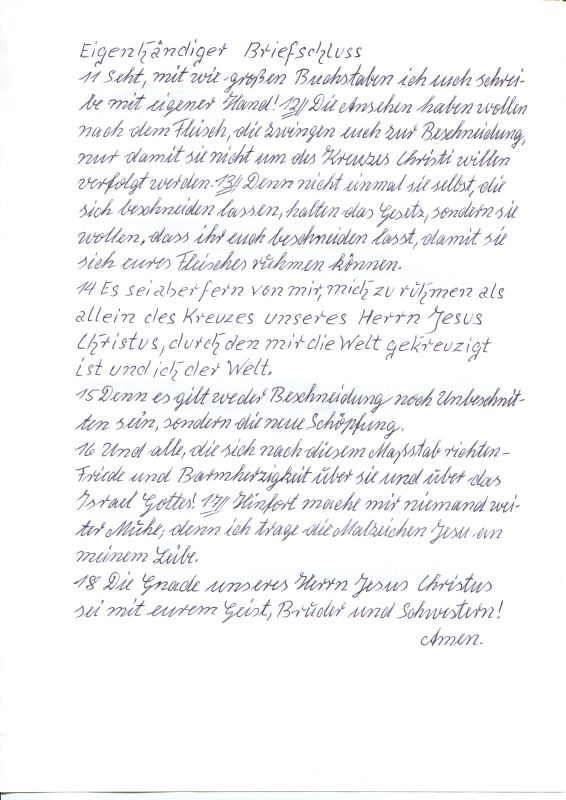 Eigenhändiger Briefschluss
11 Seht, mit wie großen Buchstaben ich euch schrei-
be mit eigener Hand! 12// Die Ansehen haben wollen
nach dem Fleisch, die zwingen euch zur Beschneidung,
nur damit sie nicht um des Kreuzes Christi willen
verfolgt werden. 13// Denn nicht einmal sie selbst, die
sich beschneiden lassen, halten das Gesetz, sondern sie
wollen, dass ihr euch beschneiden lasst, damit sie
sich eures Fleisches rühmen können.
14 Es sei aber fern von mir, mich zu rühmen als
allein des Kreuzes unseres Herrn Jesus
Christus, durch den mir die Welt gekreuzigt
ist und ich der Welt.
15 Denn es gilt weder Beschneidung noch Unbeschnit-
ten sein, sondern die neue Schöpfung.
16 Und alle, die sich nach diesem Maßstab richten-
Friede und Barmherzigkeit über sie und über das
Israel Gottes! 17// Hinfort mache mir niemand wei-
ter Mühe; denn ich trage die Malzeichen Jesu an
meinem Leibe.
18 Die Gnade unseres Herrn Jesus Christus
sei mit eurem Geist, Brüder und Schwestern!
Amen.